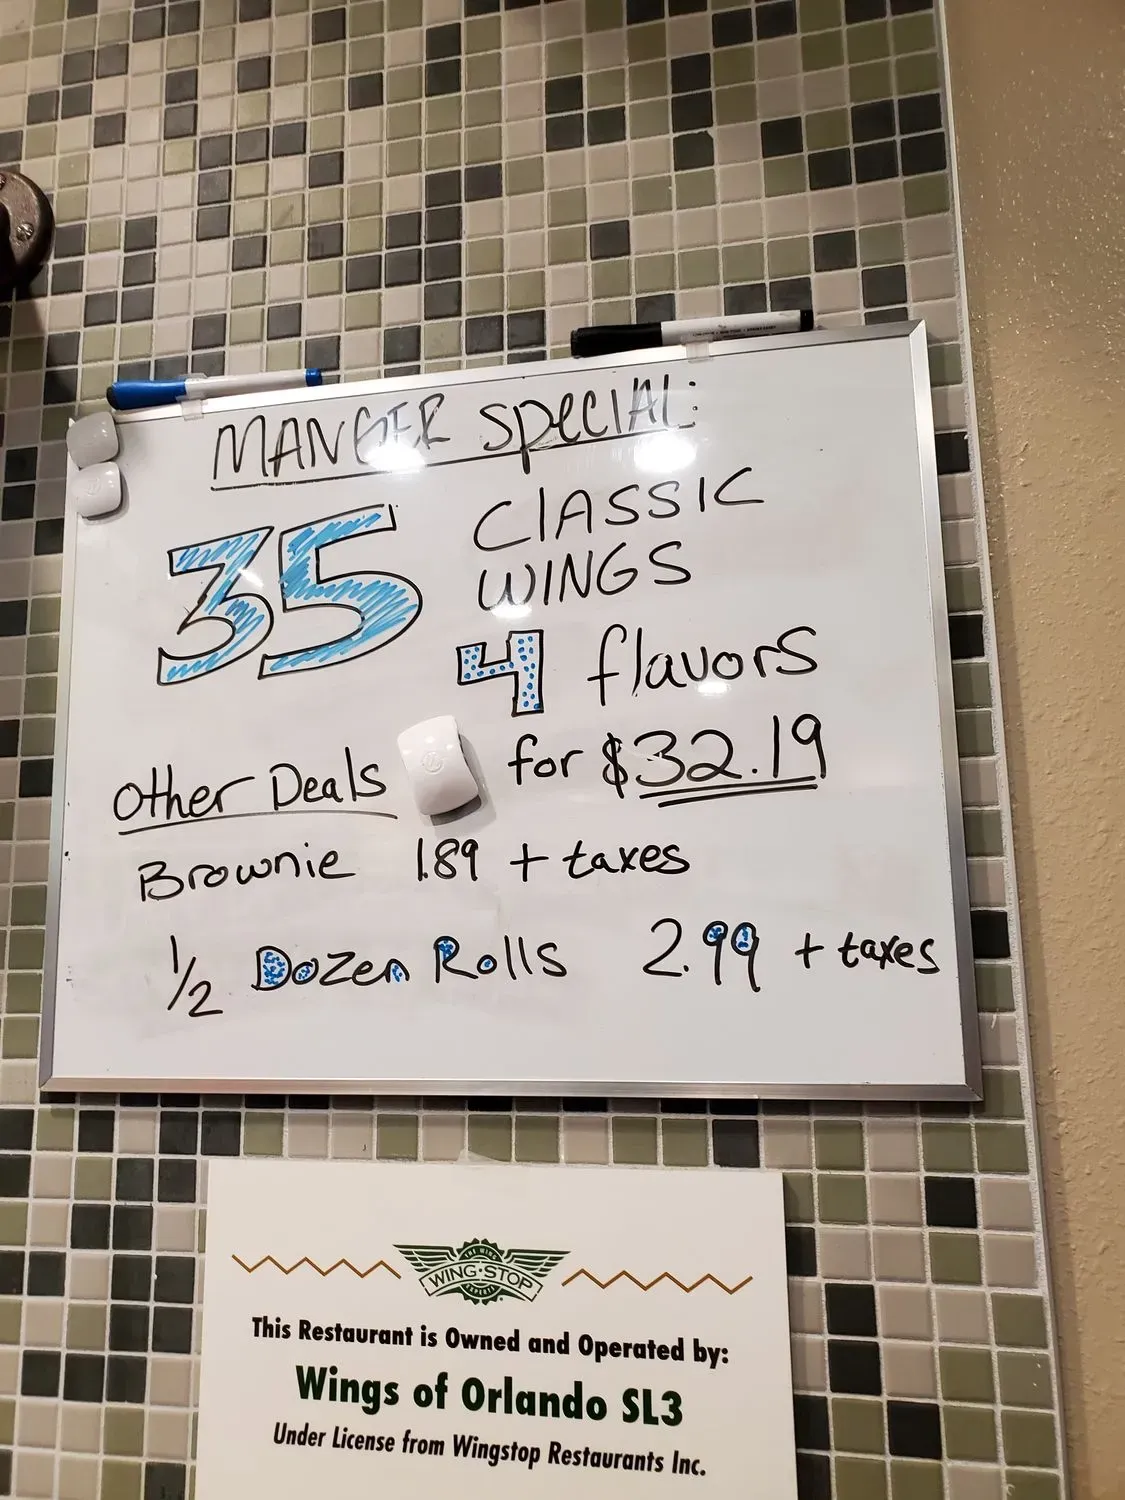 MANGER SpecIAL:
35 ClASSIC
WINGS
4 flavors
for $32.19
Other Deals
Brownie 1.89 + taxes
1/2 Dozen Rolls 2.99 + taxes
THE WING
WING·STOP
EXPERTS
This Restaurant is Owned and Operated by:
Wings of Orlando SL3
Under License from Wingstop Restaurants Inc.